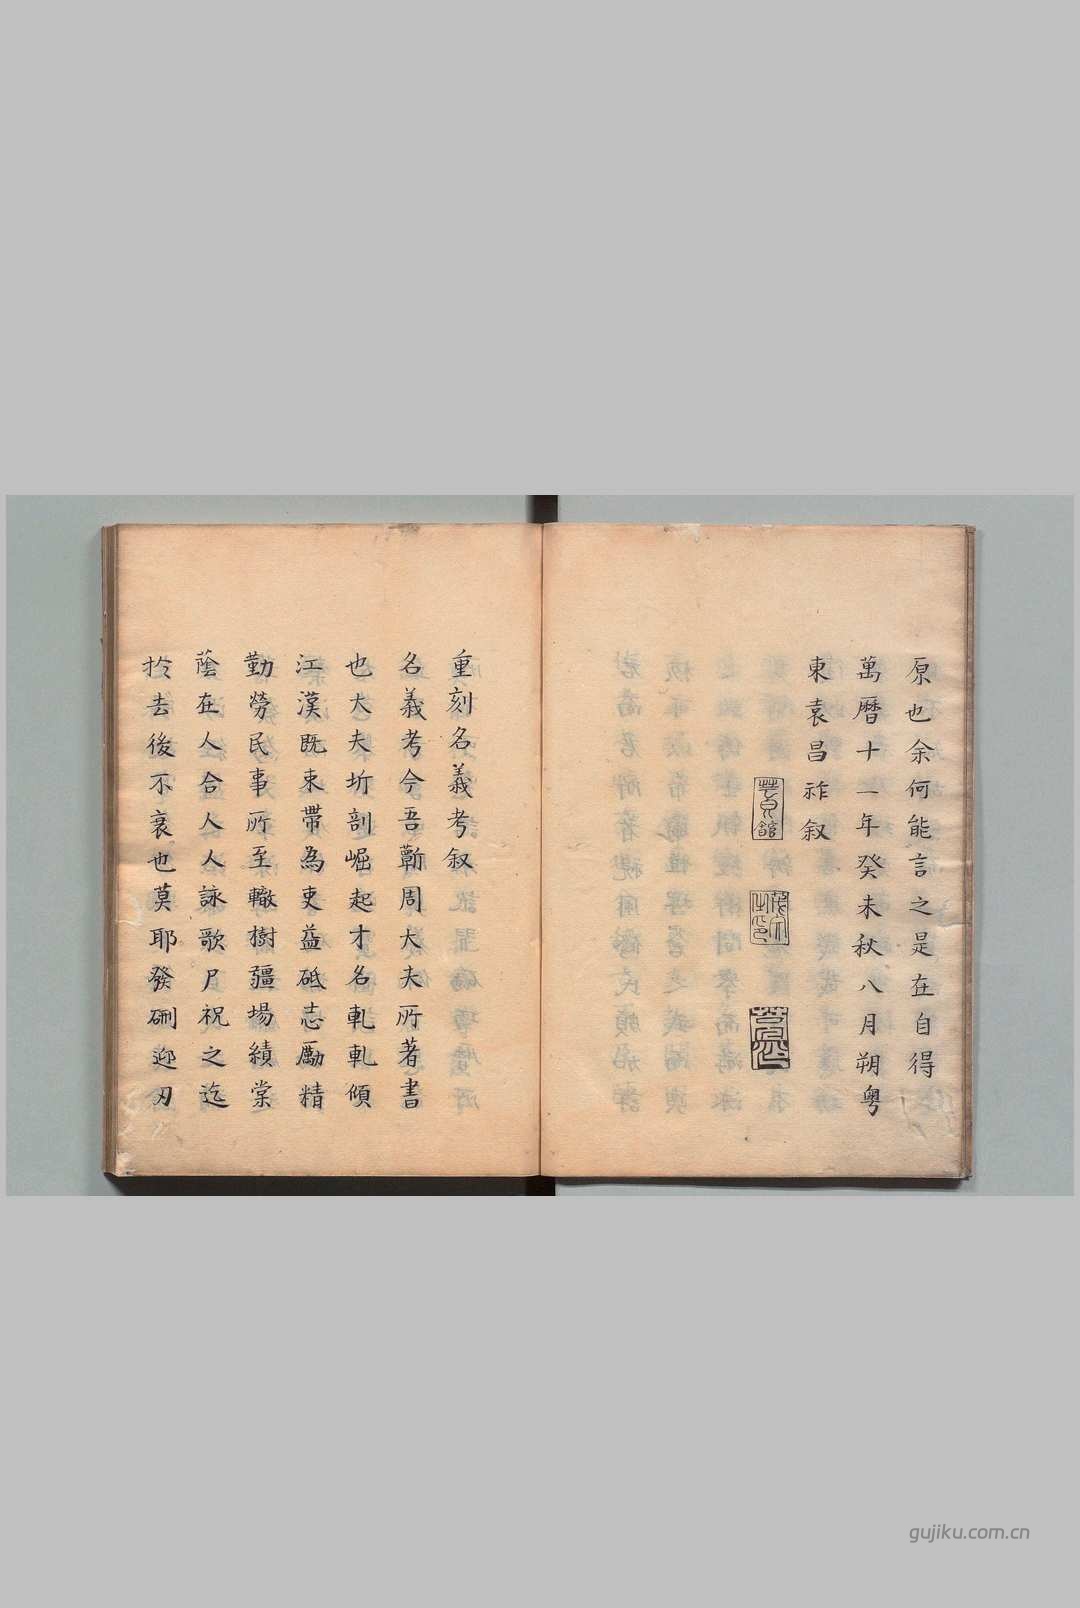 原也余何能言之是在自得
萬曆十一年癸未秋八月朔粤
東袁昌祚叙
重刻名義考叙
名義考今吾蘄周大夫所著書
也大夫圻剖崛起才名軋軋傾
江漢既束帶為吏益砥志勵精
勤勞民事所至轍樹疆場績棠
蔭在人合人人詠歌尸祝之迄
扵去後不衰也莫耶發硎迎刃
gujiku.com.cn